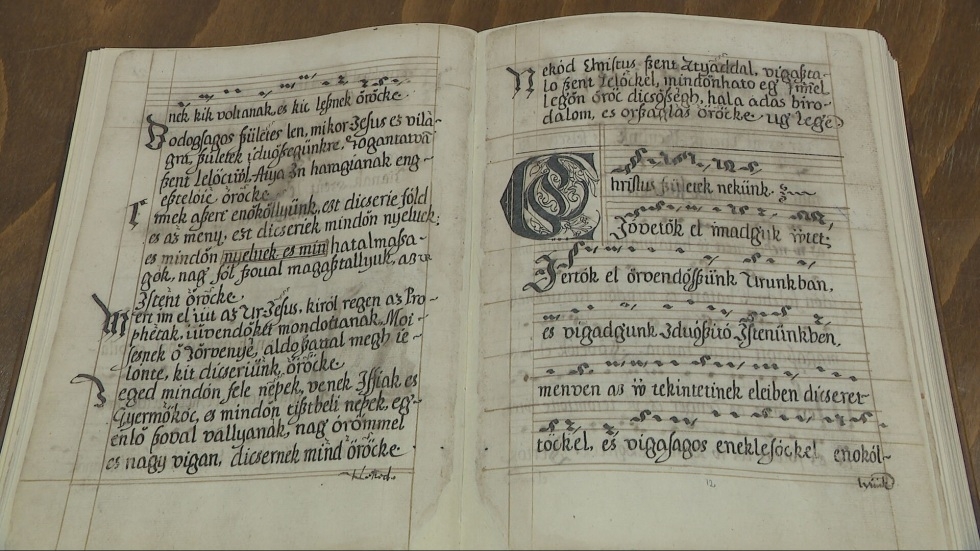 nek kik voltanak, es kik leßnek öröcke
Bodogsagos ßületes len, mikor Jesus es vilá-
gra ßületek iduößegünkre. Fogantatvá
ßent Lelöctwl, Atya Jn haragianak eng-
eßteloie öröcke
Imek aßert enököllyünk, eßt dicserie föld
es as meny, eßt dicseriek mindön nyeluek:
es mindön nyelvek es min hatalmaßa-
gok, nag föl ßoual magaßtallyuk, as w
Jstent öröcke
Mert im el iüt as Ur Jesus, kiröl regen as Pro-
phetak, iüvendöket mondottanak, Moi-
sesnek ö Törvenye, aldoßaual megh ie-
lonte, kit dicseriünk öröcke
Teged mindön fele nepek, venek Jffiak es
Gyermököc, es mindon tißtbeli nepek, eg-
enlö ßoval vallyanak, nag örömmel
es nagy vigan, dicsernek mind öröcke
Nekód Christus ßent Atyáddal, vigaßta-
lo ßent Lelöckel, mindönhato eg Jmel
legön öröc dicsöségh, hala adas biro-
dalom, es orßaglas öröcke ug lege
Christus ßületek nekünk.
Jövetök el imadgiuk wtet;
Jertök el örvendößünk Urunkban,
es vigadgiunk Jduößitö Jstenünkben,
menven as w tekintetinek eleiben dicseret
töckel, es vigasagos eneklesöckel enököl-
lyünk
12